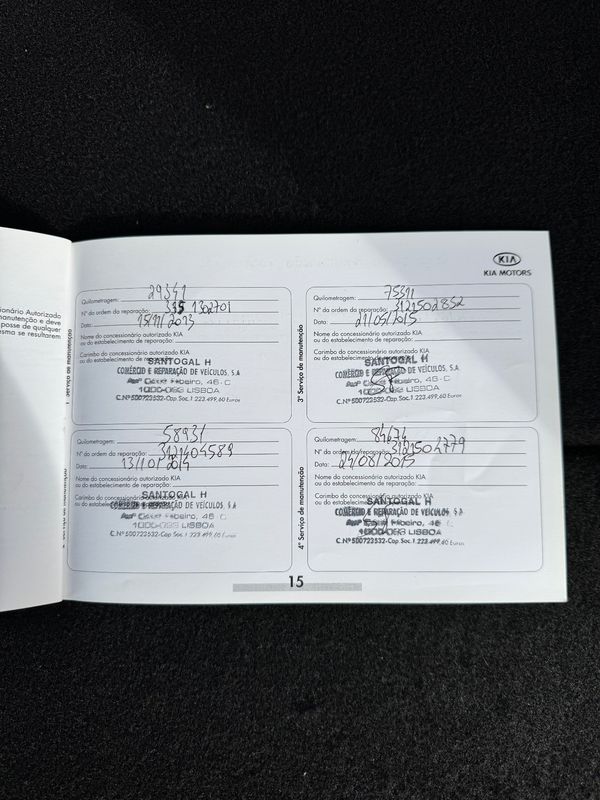 onário Autorizado
anutenção e deve
posse de qualquer
esma se resultarem
KIA
KIA MOTORS
1º Serviço de manutenção
Quilometragem: 29341
Nº da ordem da reparação: 1302701
Data: 15/11/2013
Nome do concessionário autorizado KIA
ou do estabelecimento de reparação:
Carimbo do concessionário autorizado KIA
ou do estabelecimento de reparação:
SANTOGAL H
COMÉRCIO E REPARAÇÃO DE VEÍCULOS, S.A
Ribeiro, 46 - C
LISBOA
C.Nº 500723532-Cap. Soc. 1 223.499,60 Euros
3º Serviço de manutenção
Quilometragem: 75311
Nº da ordem da reparação: 3121502852
Data: 21/05/2015
Nome do concessionário autorizado KIA
ou do estabelecimento de reparação:
Carimbo do concessionário autorizado KIA
ou do estabelecimento de reparação:
SANTOGAL H
COMÉRCIO E REPARAÇÃO DE VEÍCULOS, S.A
Ribeiro, 46 - C
LISBOA
C.Nº 500723532-Cap. Soc. 1 223.499,60 Euros
Serviço de manutenção
Quilometragem: 58931
Nº da ordem da reparação: 3121404589
Data: 13/10/2014
Nome do concessionário autorizado KIA
ou do estabelecimento de reparação:
Carimbo do concessionário autorizado KIA
ou do estabelecimento de reparação:
SANTOGAL H
COMÉRCIO E REPARAÇÃO DE VEÍCULOS, S.A
Ribeiro, 46 - C
LISBOA
C.Nº 500723532-Cap. Soc. 1 223.499,60 Euros
4º Serviço de manutenção
Quilometragem: 84674
Nº da ordem da reparação: 3121504779
Data: 24/08/2015
Nome do concessionário autorizado KIA
ou do estabelecimento de reparação:
Carimbo do concessionário autorizado KIA
ou do estabelecimento de reparação:
SANTOGAL H
COMÉRCIO E REPARAÇÃO DE VEÍCULOS, S.A
Ribeiro, 46
LISBOA
C.Nº 500723532-Cap. Soc. 1 223.499,60 Euros
15